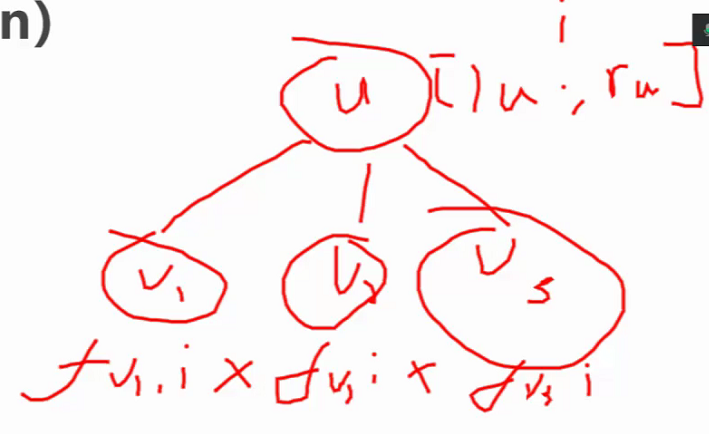 n)
i
u [lu, ru]
v1 v2 v3
fv1,i × fv2i × fv3i